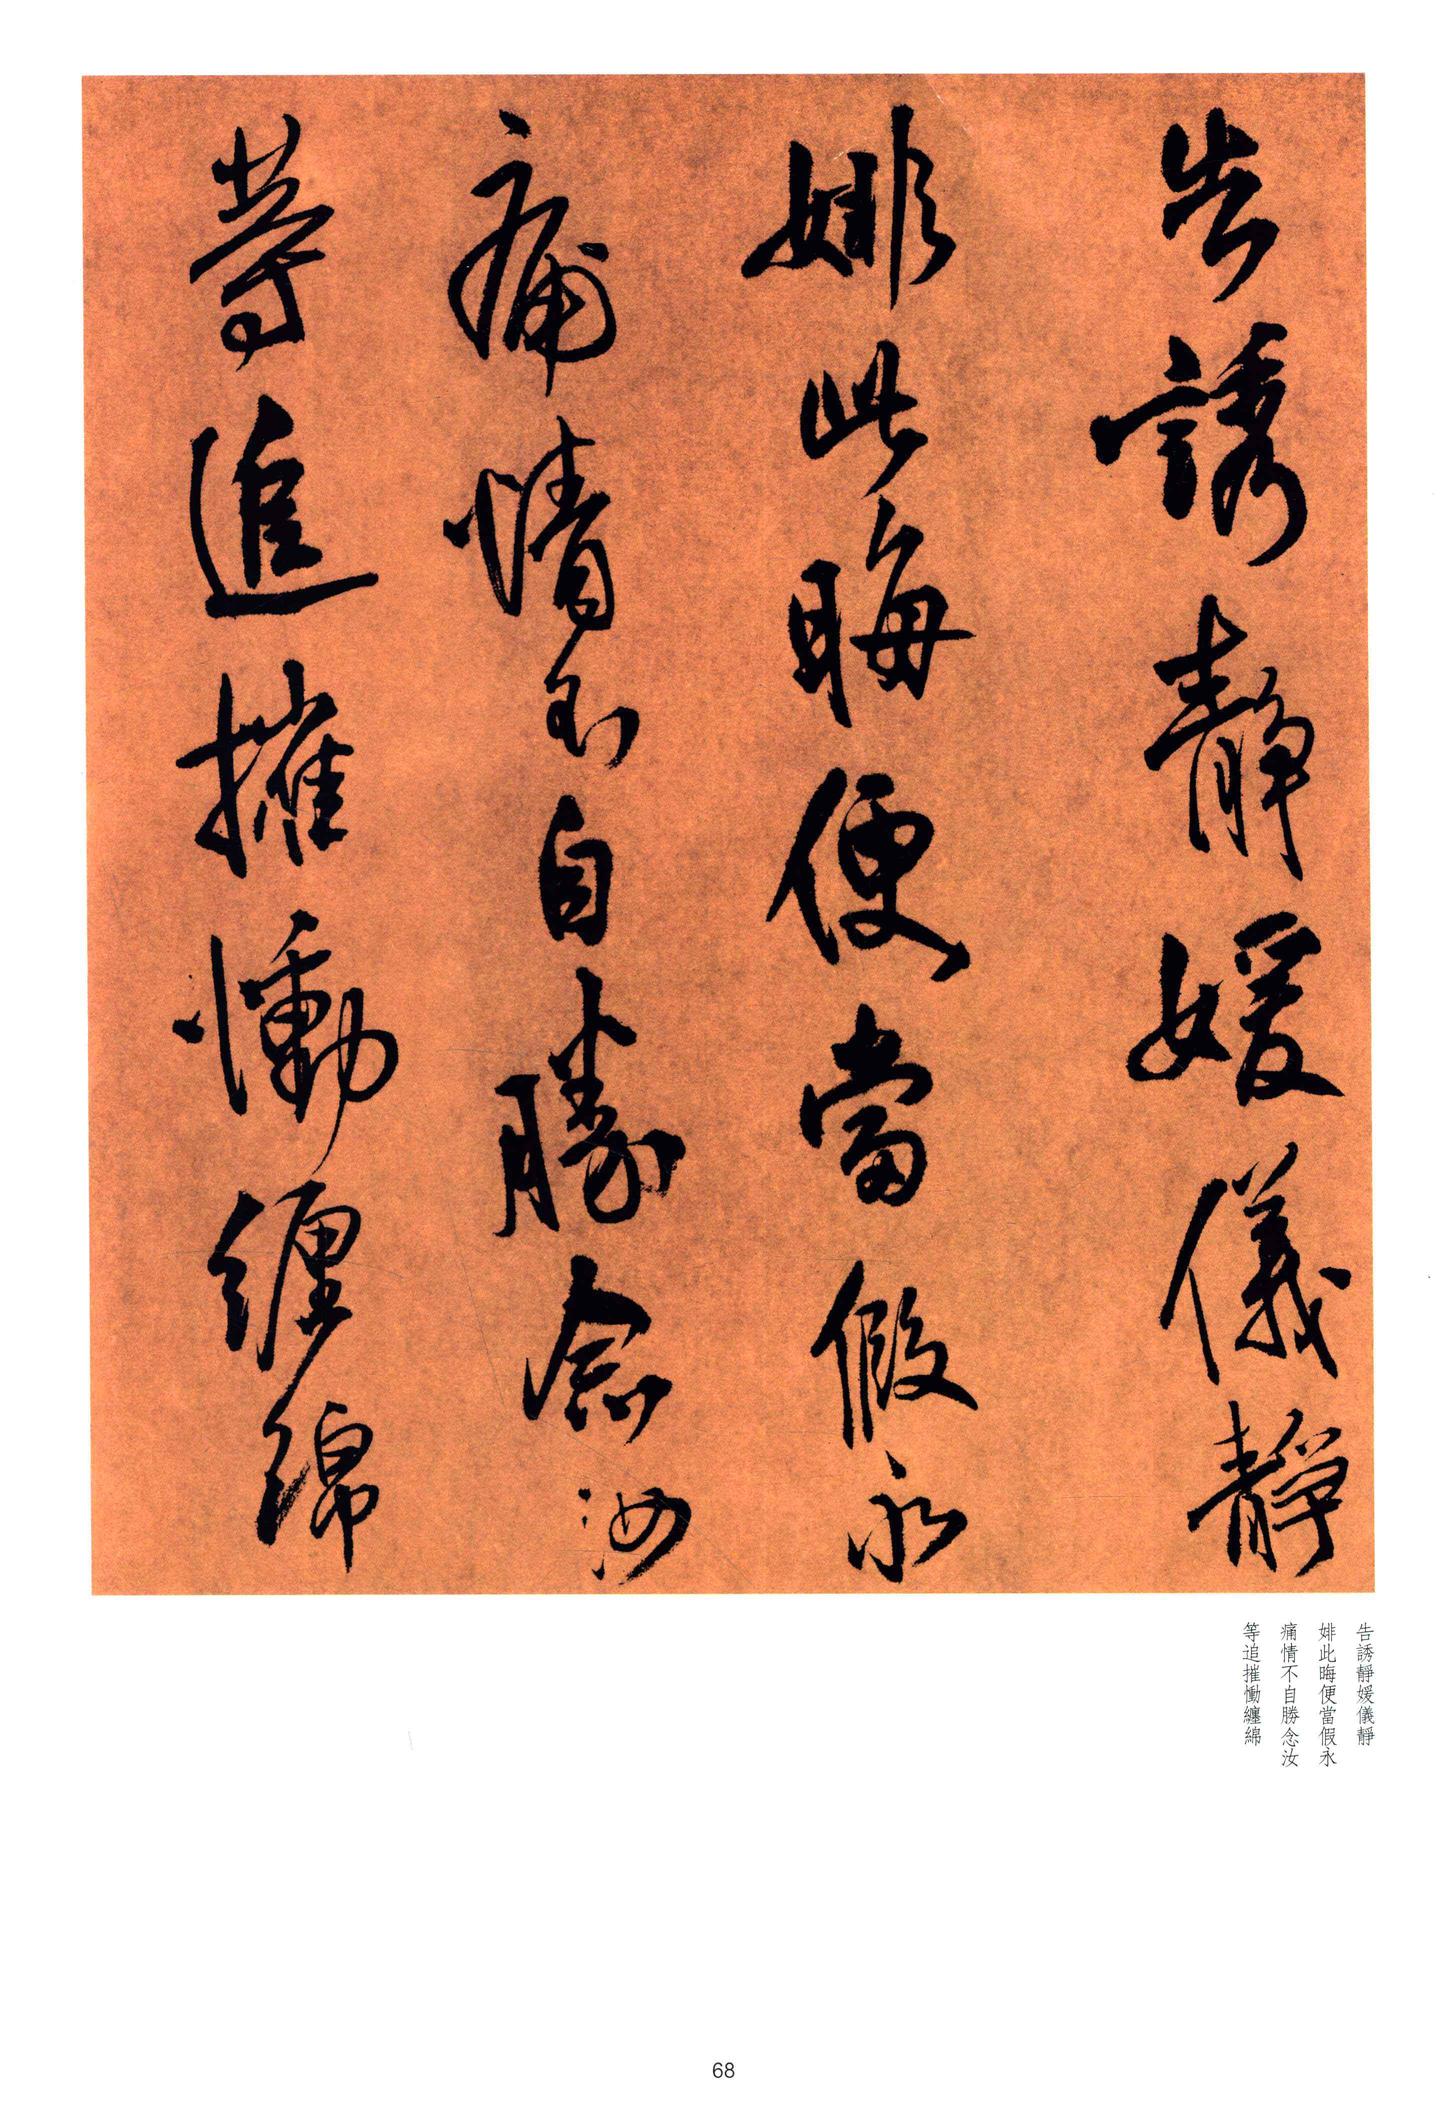 告誘靜媛儀靜
婔此晦便當假永
痛情不自勝念汝
等追摧慟纏綿
告誘靜媛儀靜
婔此晦便當假永
痛情不自勝念汝
等追摧慟纏綿
68